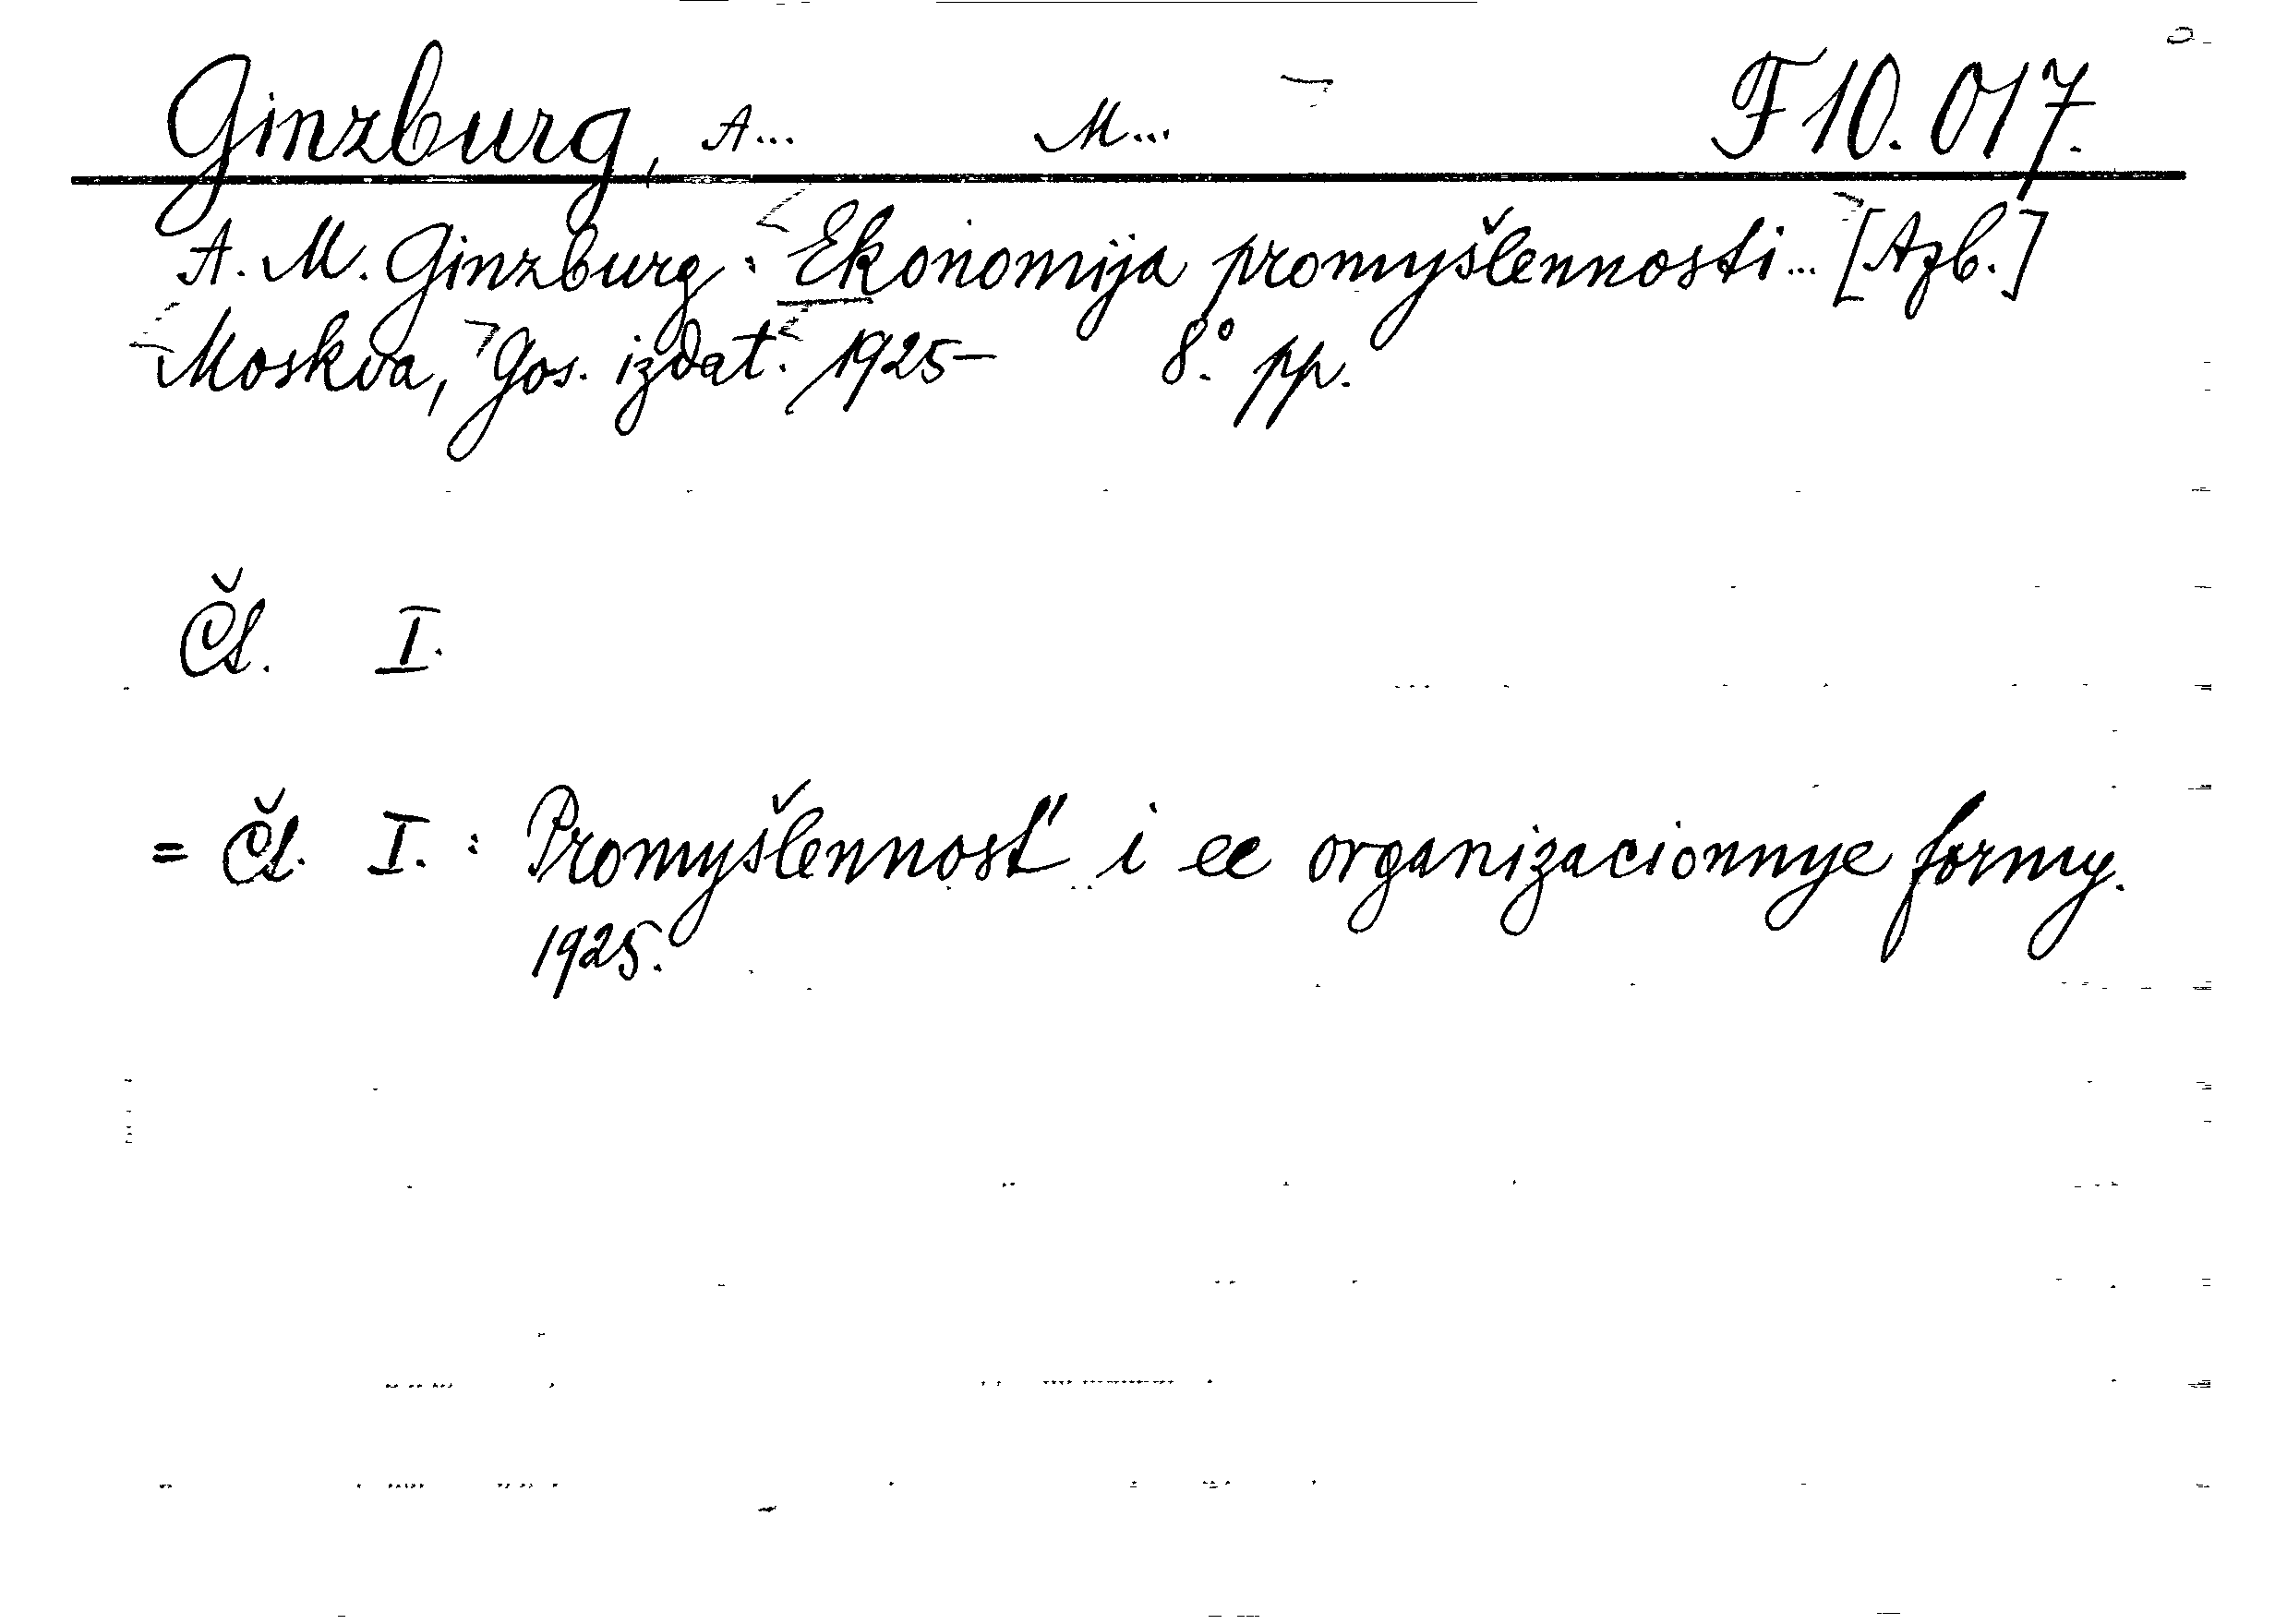 Ginzburg, A... M... F 10.017.
A. M. Ginzburg: Ekonomija promyšlennosti... [Azb.]
Moskva, Gos. izdat. 1925– 8° pp.
Čl. I.
= Čl. I. : Promyšlennost' i ee organizacionnye formy.
1925.